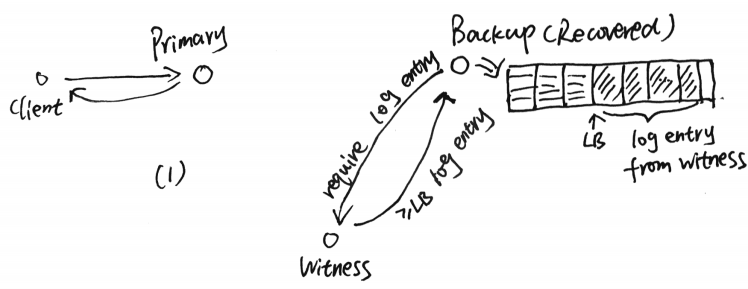 Primary
Client
(1)
Backup (Recovered)
require log entry
≥LB log entry
Witness
LB
log entry
from witness